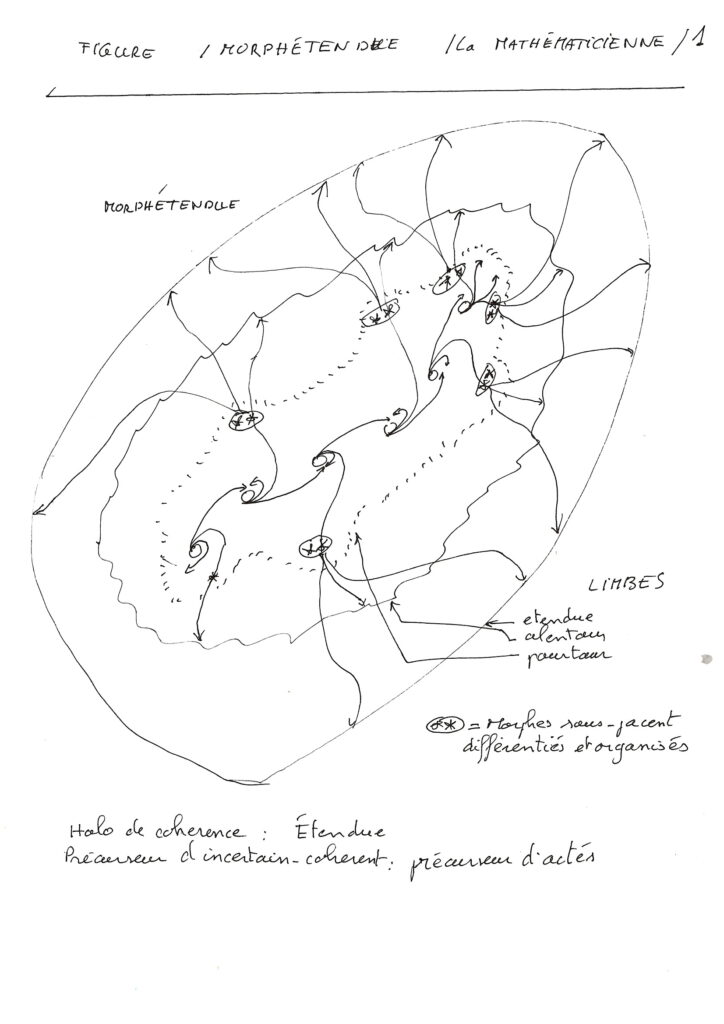 FIGURE / MORPHÉTENDUE / La MATHÉMATICIENNE / 1
MORPHÉTENDUE
LIMBES
etendue
alentour
pourtour
** = Morphes sous-jacent
différentiés et organisés
Halo de coherence : Étendue
Précurseur d'incertain-coherent : précurseur d'actés